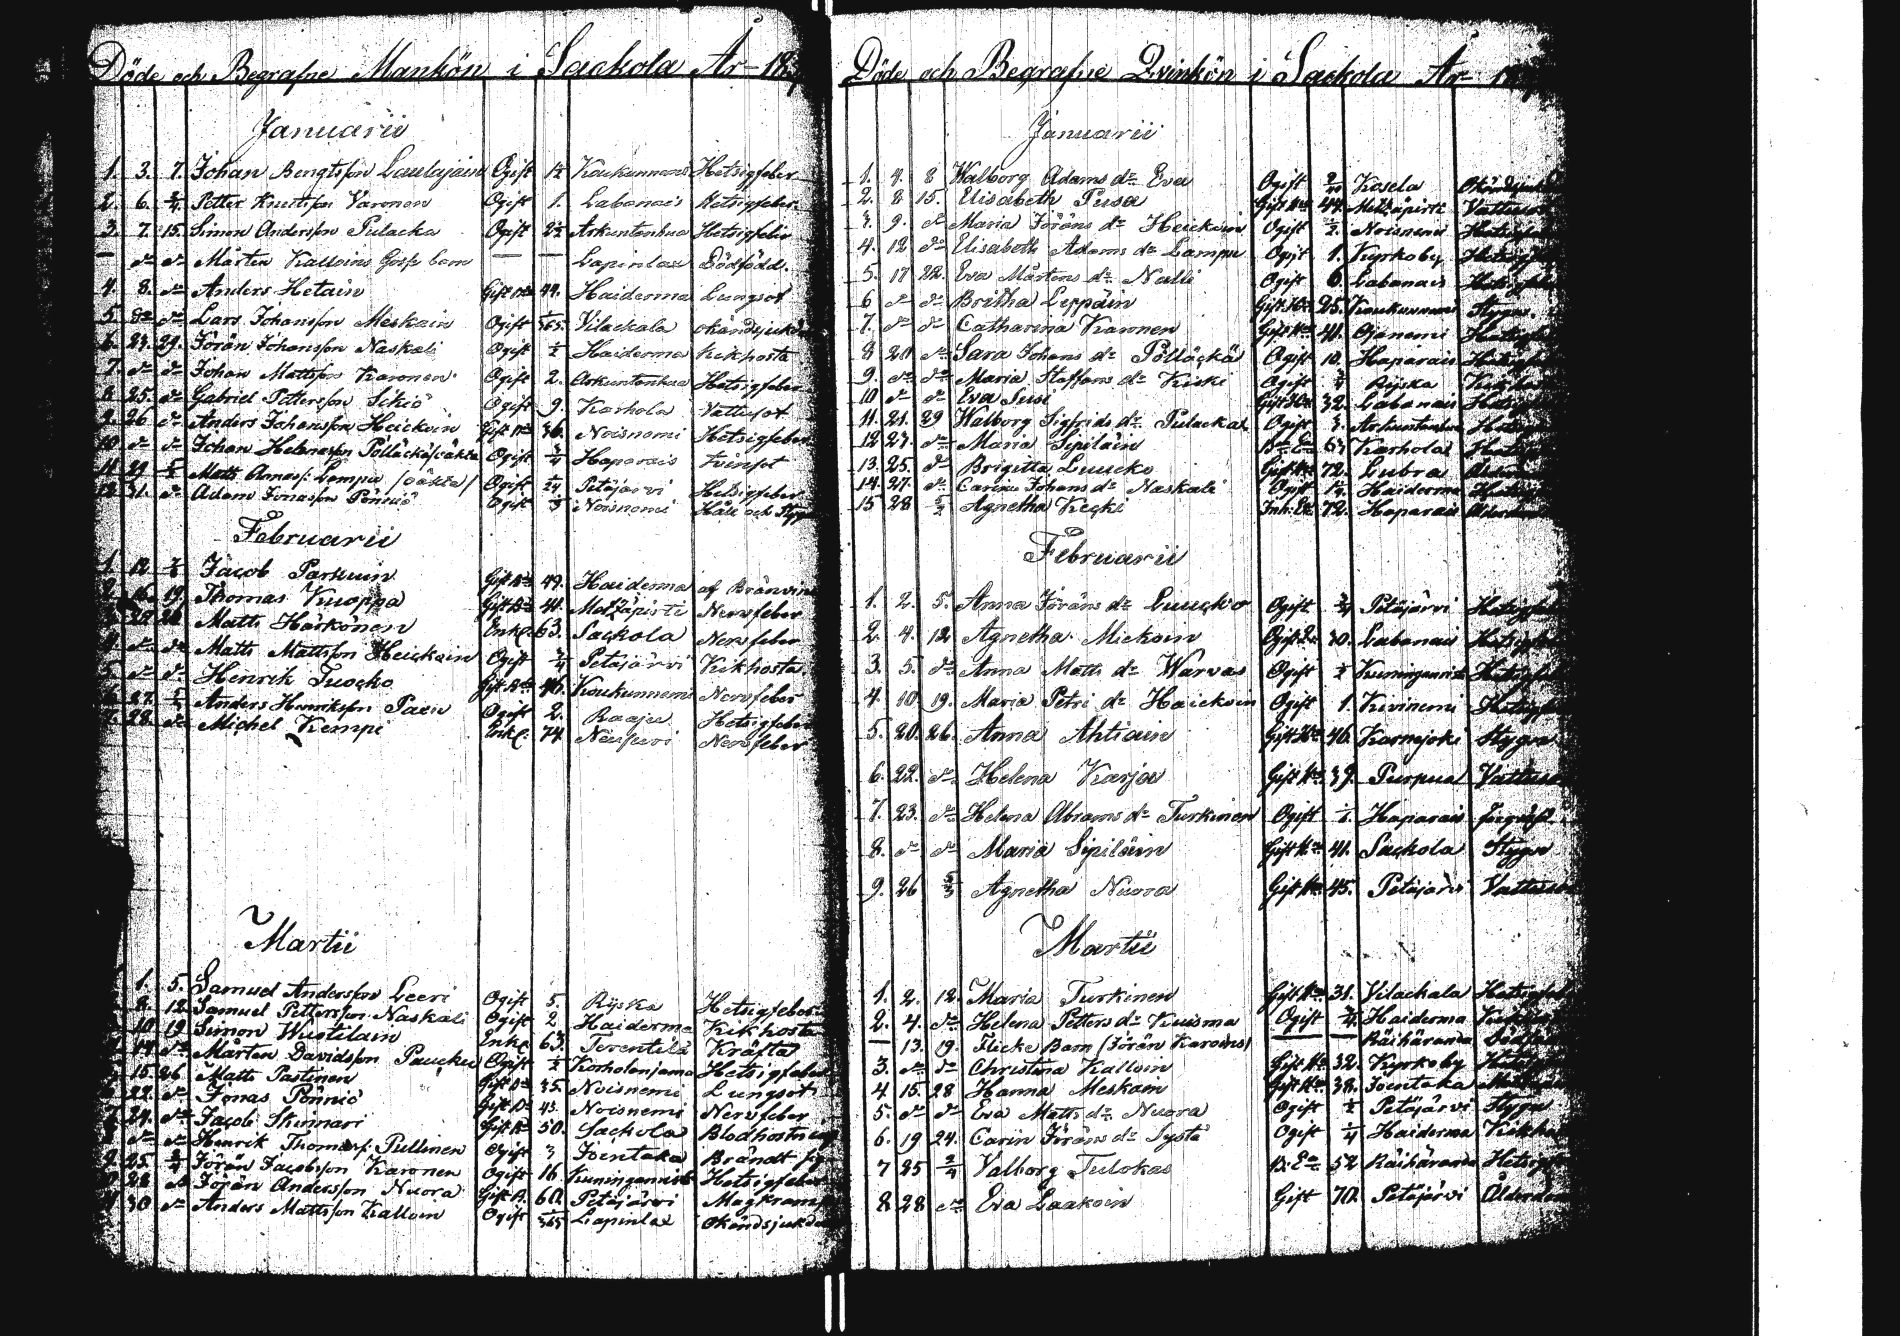 Döde och Begrafne Mankön i Sackola År
Januarii
1. 3. 7. Johan Bengtsson Laulajain Ogift 1½ Koukunniemi Hetsigfeber
2. 6. Petter Knutsson Varonen Ogift 1. Labanais Hetsigfeber
3. 7. 15. Simon Andersson Pulacka Ogift 2½ Arkuntanhua Hetsigfeber
— do do Mårten Kalloins Goss barn — — Lapinlax Dödfödd.
4. 8. do Anders Hetain Gift 44. Haiderma Lungsot
5. do do Lars Johansson Meskain Ogift Vilackala okändsjukdom
6. 23. 29. Jörän Johansson Naskali Ogift ½ Haiderma Kikhosta
7. do do Johan Mattsson Karonen Ogift 2. Arkuntanhua Hetsigfeber
8 25. do Gabriel Pettersson Sikiö Ogift 9. Karhola Vattusot
9. 26 do Anders Johansson Heickoin Gift 36. Noisnemi Hetsigfeber
10 do do Johan Helenasson Pölläckä Ogift ¾ Haparais tvinsot
11 29 Matts Annæs: Lempu /oäkta/ Ogift Petäjärvi Hetsigfeber
12 31. do Adam Jonasson Pönniö Ogift Noisnemi Håll och Styng
Februarii
1 12 Jacob Parkuin Gift 49. Haiderma af Bränvin
2. 16. 19. Thomas Kuoppa Gift 41. Metzäpirti Nervfeber
20 26 Matts Härkönen Enkl. 63. Sackola Nervfeber
4. do do Matts Mattsson Heickoin Ogift ¾ Petäjärvi Kikhosta.
5. do do Henrik Tuocko Gift 46. Koukunnemi Nervfeber
27. Anders Henriksson Paavi Ogift 2. Raaju Hetsigfeber
7. 28. do Michel Kempi Enkl. 74. Nervfeber
Martii
1. 5. Samuel Andersson Leeri Ogift 5. Rijska Hetsigfeber
8. 12 Samuel Pettersson Naskali Ogift 2 Haiderma Kikhosta
10 19 Simon Wustilain Enkl. 63. Terentilä Kräfta
14 do Mårten Davidsson Paucku Ogift ½ Korholanjama Hetsigfeber
15 26 Matts Pastinen Gift 35. Noisnemi Lungsot
22. do Jonas Pönniö Gift 43. Noisnemi Nervfeber
24. do Jacob Skinnari Gift 50. Sackola Blodhostning
do do Henrik Thomæs: Pullinen Ogift 3 Joentaka Brändt
25. Jörän Jacobsson Karonen Ogift 16 Kuninganniska Hetsigfeber
28 do Jörän Andersson Nuora Gift 60. Petäjärvi Magkramp
30 do Anders Mattsson Kalloin Ogift Lapinlax Okändsjukdom
Döde och Begrafne Qvinkön i Sackola År
Januarii
1. 4. 8 Walborg Adams dr Eva Ogift Kosela Okändsjukd
2. 8 15. Elisabeth Pusa Gift 44. Metzäpirti Vattusot
3. 9. do Maria Jöräns dr Heickoin Ogift ½. Noisnemi Hetsigfeber
4. 12 do Elisabeth Adams dr Lampu Ogift 1. Kyrkoby Hetsigfeber
5. 17 22. Eva Mårtens dr Nalli Ogift 6. Labanais Hetsigfeber
6 do do Britha Leppäin Gift 25. Koukunnemi Styng
7. do do Catharina Karonen Gift 41. Ojanemi Hetsigfeber
8 20 do Sara Johans dr Pölläckä Ogift 10. Haparais Hetsigfeber
9. do do Maria Staffans dr Kieki Ogift Rijska Kikhosta
10 do do Eva Susi Gift 32. Labanais
11. 21. 29 Walborg Sigfrids dr Pulackal Ogift 3. Arkuntanhua
12 23. do Maria Sipiläin 63 Karhola
13. 25. do Brigitta Luucko Gift 72. Lubra
14. 27. do Carin Johans dr Naskali Ogift 1½. Haiderma
15 28 Agnetha Kecki Inh: 72. Haparais Ålderdom
Februarii
1. 2. 5. Anna Jöräns dr Luucko Ogift ¾ Petäjärvi Hetsigfeber
2. 4. 12 Agnetha Mickoin 30. Labanais Hetsigfeber
3. 5. do Anna Matts dr Warvas Ogift ½ Kuninganniska Hetsigfeber
4. 10 19. Maria Petri dr Haickoin Ogift 1. Kivinemi Hetsigfeber
5. 20. 26. Anna Ahtiain Gift 46. Karnajoki Styng
6. 22. do Helena Karja Gift 39. Purpua Vattusot
7. 23. do Helena Abrams dr Turkinen Ogift Haparais
8. do do Maria Sipiläin Gift 41. Sackola Styng
9. 26 Agnetha Nuora Gift 45. Petäjärvi Vattusot
Martii
1. 2. 12. Maria Turkinen Gift 31. Vilackala Hetsigfeber
2. 4. do Helena Petters dr Kuisma Ogift ¾. Haiderma Kikhosta
— 13. 19. Flicke Barn /Jörän Karoins/ — — Räihäranda Dödfödd
3. do do Christina Kalloin Gift 32. Kyrkoby
4 15. 28 Hanna Meskain Gift 38. Joentaka
5. do do Eva Matts dr Nuora Ogift ½ Petäjärvi Styng
6. 19 24. Carin Jöräns dr Systä Ogift ¼ Haiderma Kikhosta
7 25 Valborg Tulokas 52 Räihäranda Hetsigfeber
8 28 do Eva Laakoin Gift 70. Petäjärvi Ålderdom